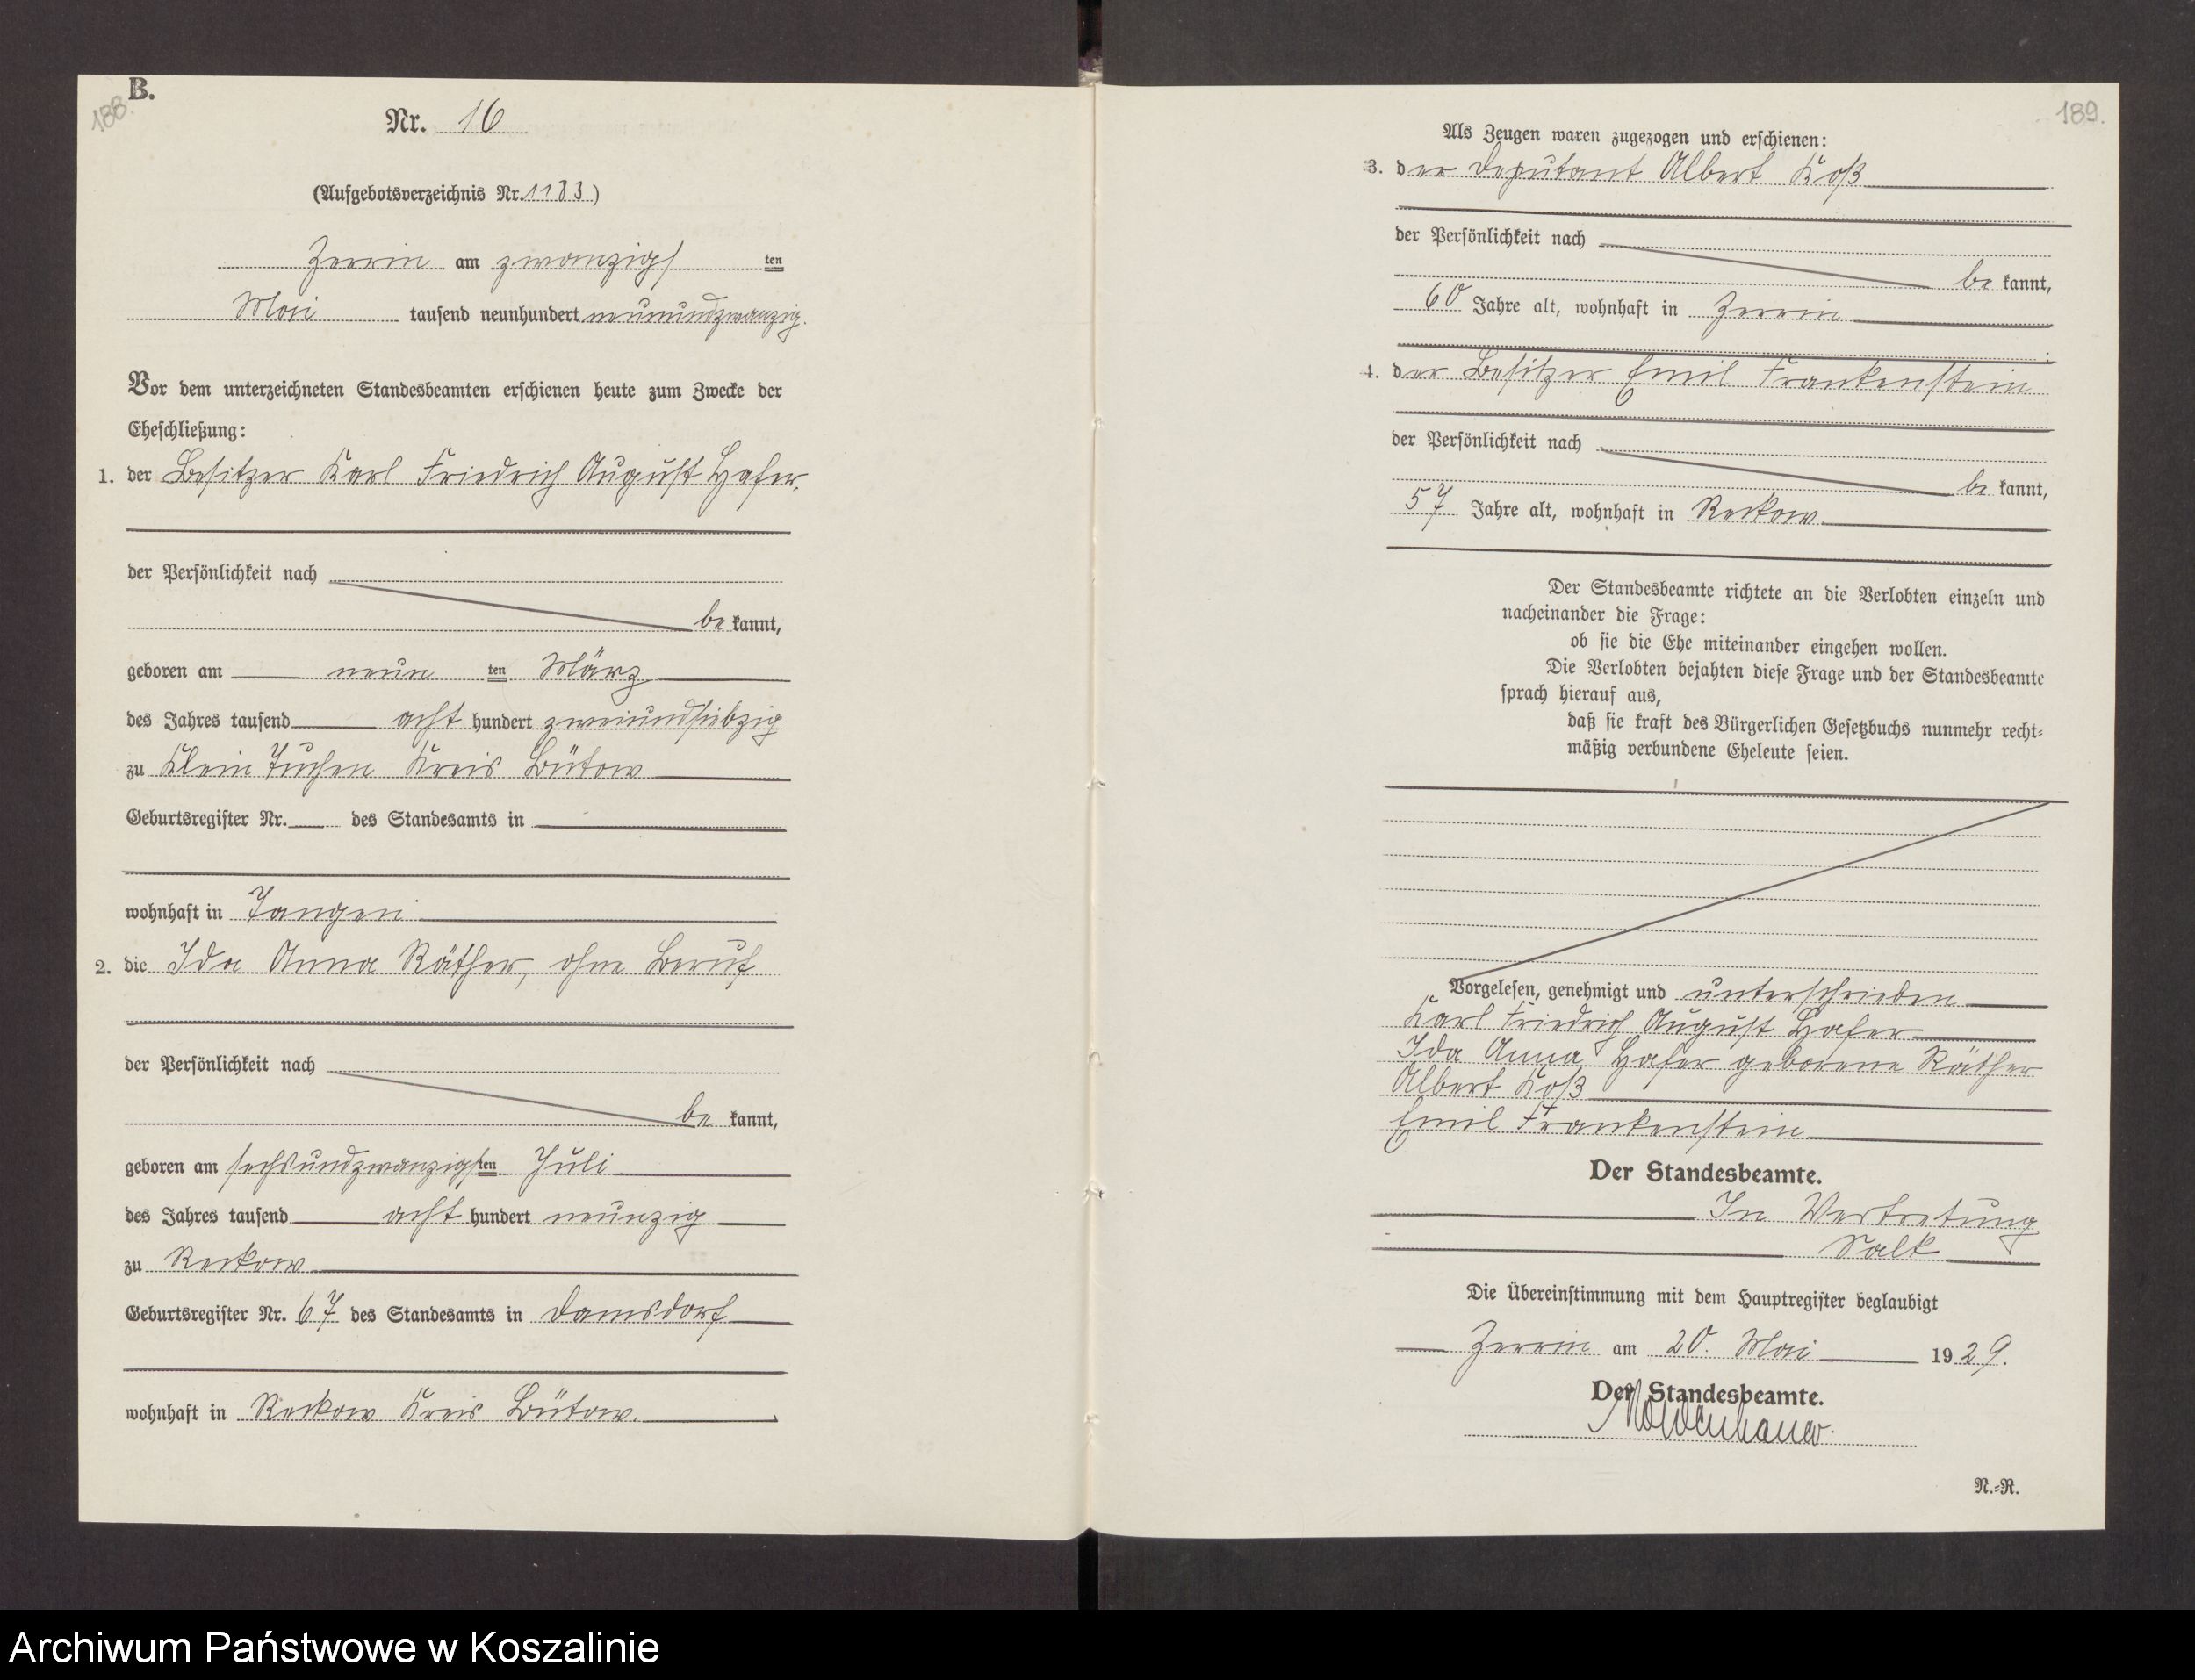 188.
B.
Nr. 16
(Aufgebotsverzeichnis Nr. 1183)
Zerrin am zwanzigsten
Mai tausend neunhundert neunundzwanzig.
Vor dem unterzeichneten Standesbeamten erschienen heute zum Zwecke der
Eheschließung:
1. der Besitzer Karl Friedrich August Hafer,
der Persönlichkeit nach
be kannt,
geboren am neun ten März
des Jahres tausend acht hundert zweiundsiebzig
zu Klein Tuchen Kreis Bütow
Geburtsregister Nr. des Standesamts in
wohnhaft in Tangen
2. die Ida Anna Räther, ohne Beruf
der Persönlichkeit nach
be kannt,
geboren am sechsundzwanzigsten Juli
des Jahres tausend acht hundert neunzig
zu Reckow
Geburtsregister Nr. 67 des Standesamts in Damsdorf
wohnhaft in Reckow Kreis Bütow.
189.
Als Zeugen waren zugezogen und erschienen:
3. der Deputant Albert Koß
der Persönlichkeit nach
be kannt,
60 Jahre alt, wohnhaft in Zerrin
4. der Besitzer Emil Frankenstein
der Persönlichkeit nach
be kannt,
57 Jahre alt, wohnhaft in Reckow
Der Standesbeamte richtete an die Verlobten einzeln und
nacheinander die Frage:
ob sie die Ehe miteinander eingehen wollen.
Die Verlobten bejahten diese Frage und der Standesbeamte
sprach hierauf aus,
daß sie kraft des Bürgerlichen Gesetzbuchs nunmehr recht-
mäßig verbundene Eheleute seien.
Vorgelesen, genehmigt und unterschrieben
Karl Friedrich August Hafer
Ida Anna Hafer geborene Räther
Albert Koß
Emil Frankenstein
Der Standesbeamte.
In Vertretung
Salk
Die Übereinstimmung mit dem Hauptregister beglaubigt
Zerrin am 20. Mai 1929.
Der Standesbeamte.
Moldenhauer.
N.-R.
Archiwum Państwowe w Koszalinie